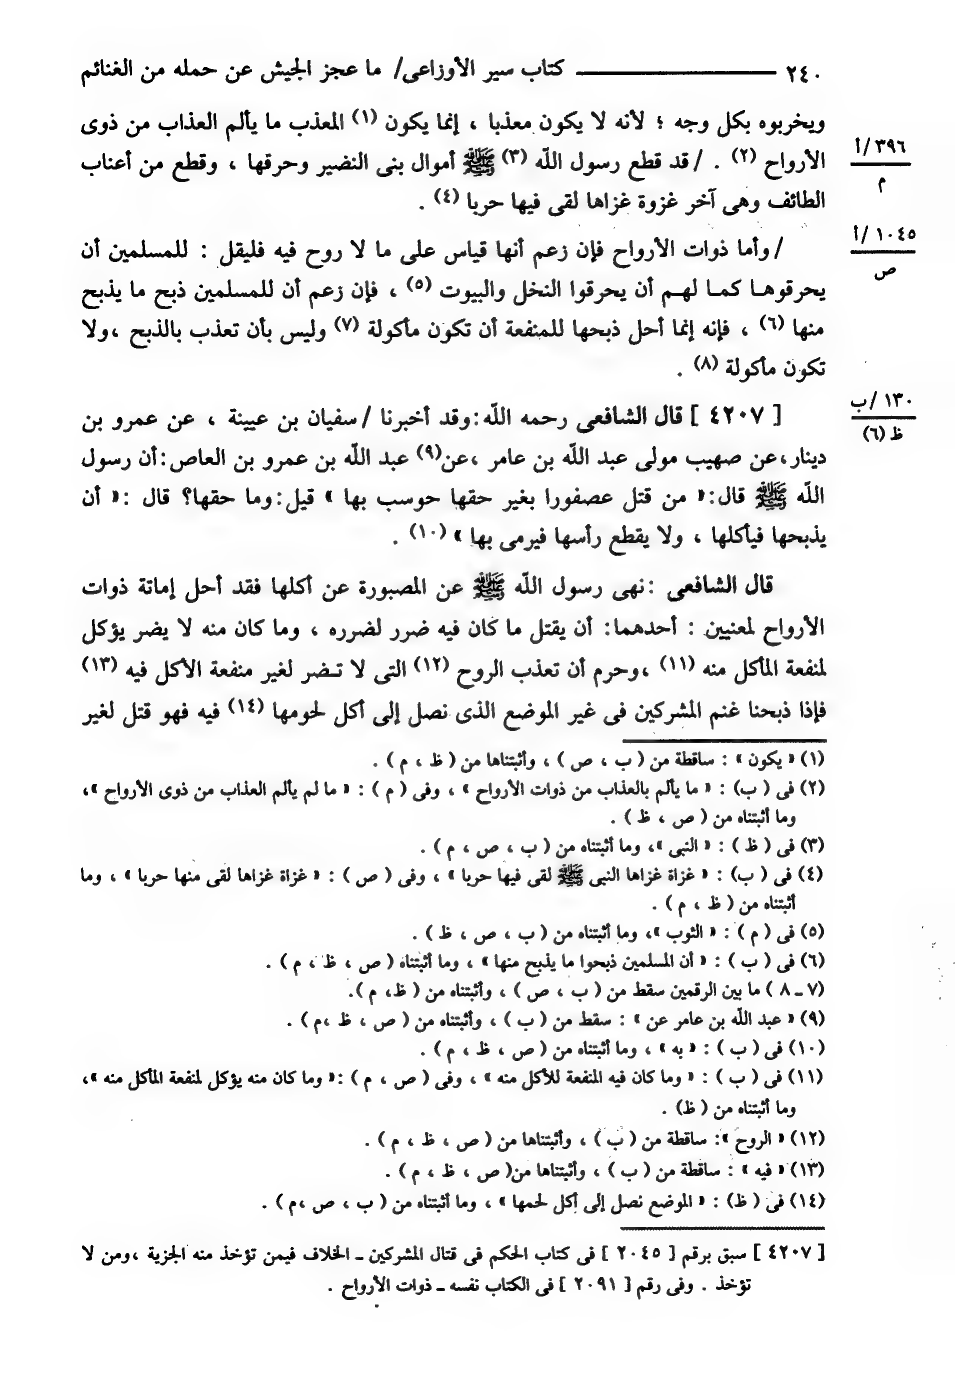 ٢٤٠ كتاب سير الأوزاعى/ ما عجز الجيش عن حمله من الغنائم
ويخربوه بكل وجه ؛ لأنه لا يكون معذبا ، إنما يكون (١) المعذب ما يألم العذاب من ذوى
الأرواح (٢) . / قد قطع رسول اللّه (٣) ﷺ أموال بنى النضير وحرقها ، وقطع من أعناب
٣٩٦/ أ
م
الطائف وهى آخر غزوة غزاها لقى فيها حربا (٤) .
/ وأما ذوات الأرواح فإن زعم أنها قياس على ما لا روح فيه فليقل : للمسلمين أن
١٠٤٥/ أ
ص
يحرقوهـا كمـا لهـم أن يحرقوا النخل والبيوت (٥) ، فإن زعم أن للمسلمين ذبح ما يذبح
منها (٦) ، فإنه إنما أحل ذبحها للمنفعة أن تكون مأكولة (٧) وليس بأن تعذب بالذبح ،ولا
تكون مأكولة (٨) .
[ ٤٢٠٧ ] قال الشافعى رحمه اللّه :وقد أخبرنا /سفيان بن عيينة ، عن عمرو بن
١٣٠/ ب
ظ (٦)
دينار،عن صهيب مولى عبد اللّه بن عامر ،عن(٩) عبد اللّه بن عمرو بن العاص:أن رسول
اللّه ﷺ قال:« من قتل عصفورا بغير حقها حوسب بها » قيل:وما حقها؟ قال :« أن
يذبحها فيأكلها ، ولا يقطع رأسها فيرمى بها » (١٠) .
قال الشافعى :نهى رسول اللّه ﷺ عن المصبورة عن أكلها فقد أحل إماتة ذوات
الأرواح لمعنيين : أحدهما: أن يقتل ما كان فيه ضرر لضرره ، وما كان منه لا يضر يؤكل
لمنفعة المأكل منه (١١) ،وحرم أن تعذب الروح (١٢) التى لا تـضر لغير منفعة الأكل فيه (١٣)
فإذا ذبحنا غنم المشركين فى غير الموضع الذى نصل إلى أكل لحومها (١٤) فيه فهو قتل لغير
(١) « يكون » : ساقطة من ( ب ، ص ) ، وأثبتناها من ( ظ ، م ) .
(٢) فى ( ب) : « ما يألم بالعذاب من ذوات الأرواح » ، وفى ( م ) : « ما لم يألم العذاب من ذوى الأرواح »،
وما أثبتناه من ( ص ، ظ ) .
(٣) فى ( ظ ) : « النبى »، وما أثبتناه من ( ب ، ص ، م ) .
(٤) فى ( ب) : « غزاة غزاها النبى ﷺ لقى فيها حربا » ، وفى ( ص ) : « غزاة غزاها لقى منها حربا » ، وما
أثبتناه من ( ظ ، م ) .
(٥) فى ( م ) : « الثوب »، وما أثبتناه من ( ب ، ص ، ظ ) .
(٦) فى ( ب ) : « أن المسلمين ذبحوا ما يذبح منها » ، وما أثبتناه ( ص ، ظ ، م ) .
(٧ ــ ٨ ) ما بين الرقمين سقط من ( ب ، ص ) ، وأثبتناه من ( ظ، م ).
(٩) « عبد اللّه بن عامر عن » : سقط من ( ب ) ، وأثبتناه من ( ص ، ظ ،م ) .
(١٠) فى ( ب ) : « به » ، وما أثبتناه من ( ص ، ظ ، م ) .
(١١) فى ( ب ) : « وما كان فيه المنفعة للأكل منه » ، وفى ( ص ، م ) :« وما كان منه يؤكل لمنفعة المأكل منه »،
وما أثبتناه من ( ظ) .
(١٢) « الروح »: ساقطة من ( ب ) ، وأثبتناها من ( ص ، ظ ، م ) .
(١٣) « فيه » : ساقطة من ( ب ) ، وأثبتناها من( ص ، ظ ، م ) .
(١٤) فى ( ظ) : « الموضع نصل إلى أكل لحمها » ، وما أثبتناه من ( ب ، ص ،م ) .
[ ٤٢٠٧ ] سبق برقم [ ٢٠٤٥ ] فى كتاب الحكم فى قتال المشركين ــ الخلاف فيمن تؤخذ منه الجزية ،ومن لا
تؤخذ . وفى رقم [ ٢٠٩١ ] فى الكتاب نفسه ــ ذوات الأرواح .